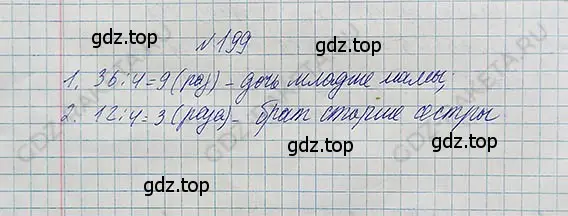 №199
1. 36:4=9 (раз) - дочь младше мамы;
2. 12:4=3 (раза) - брат старше сестры
gdz.top gdz.top gdz.top
gdz.top